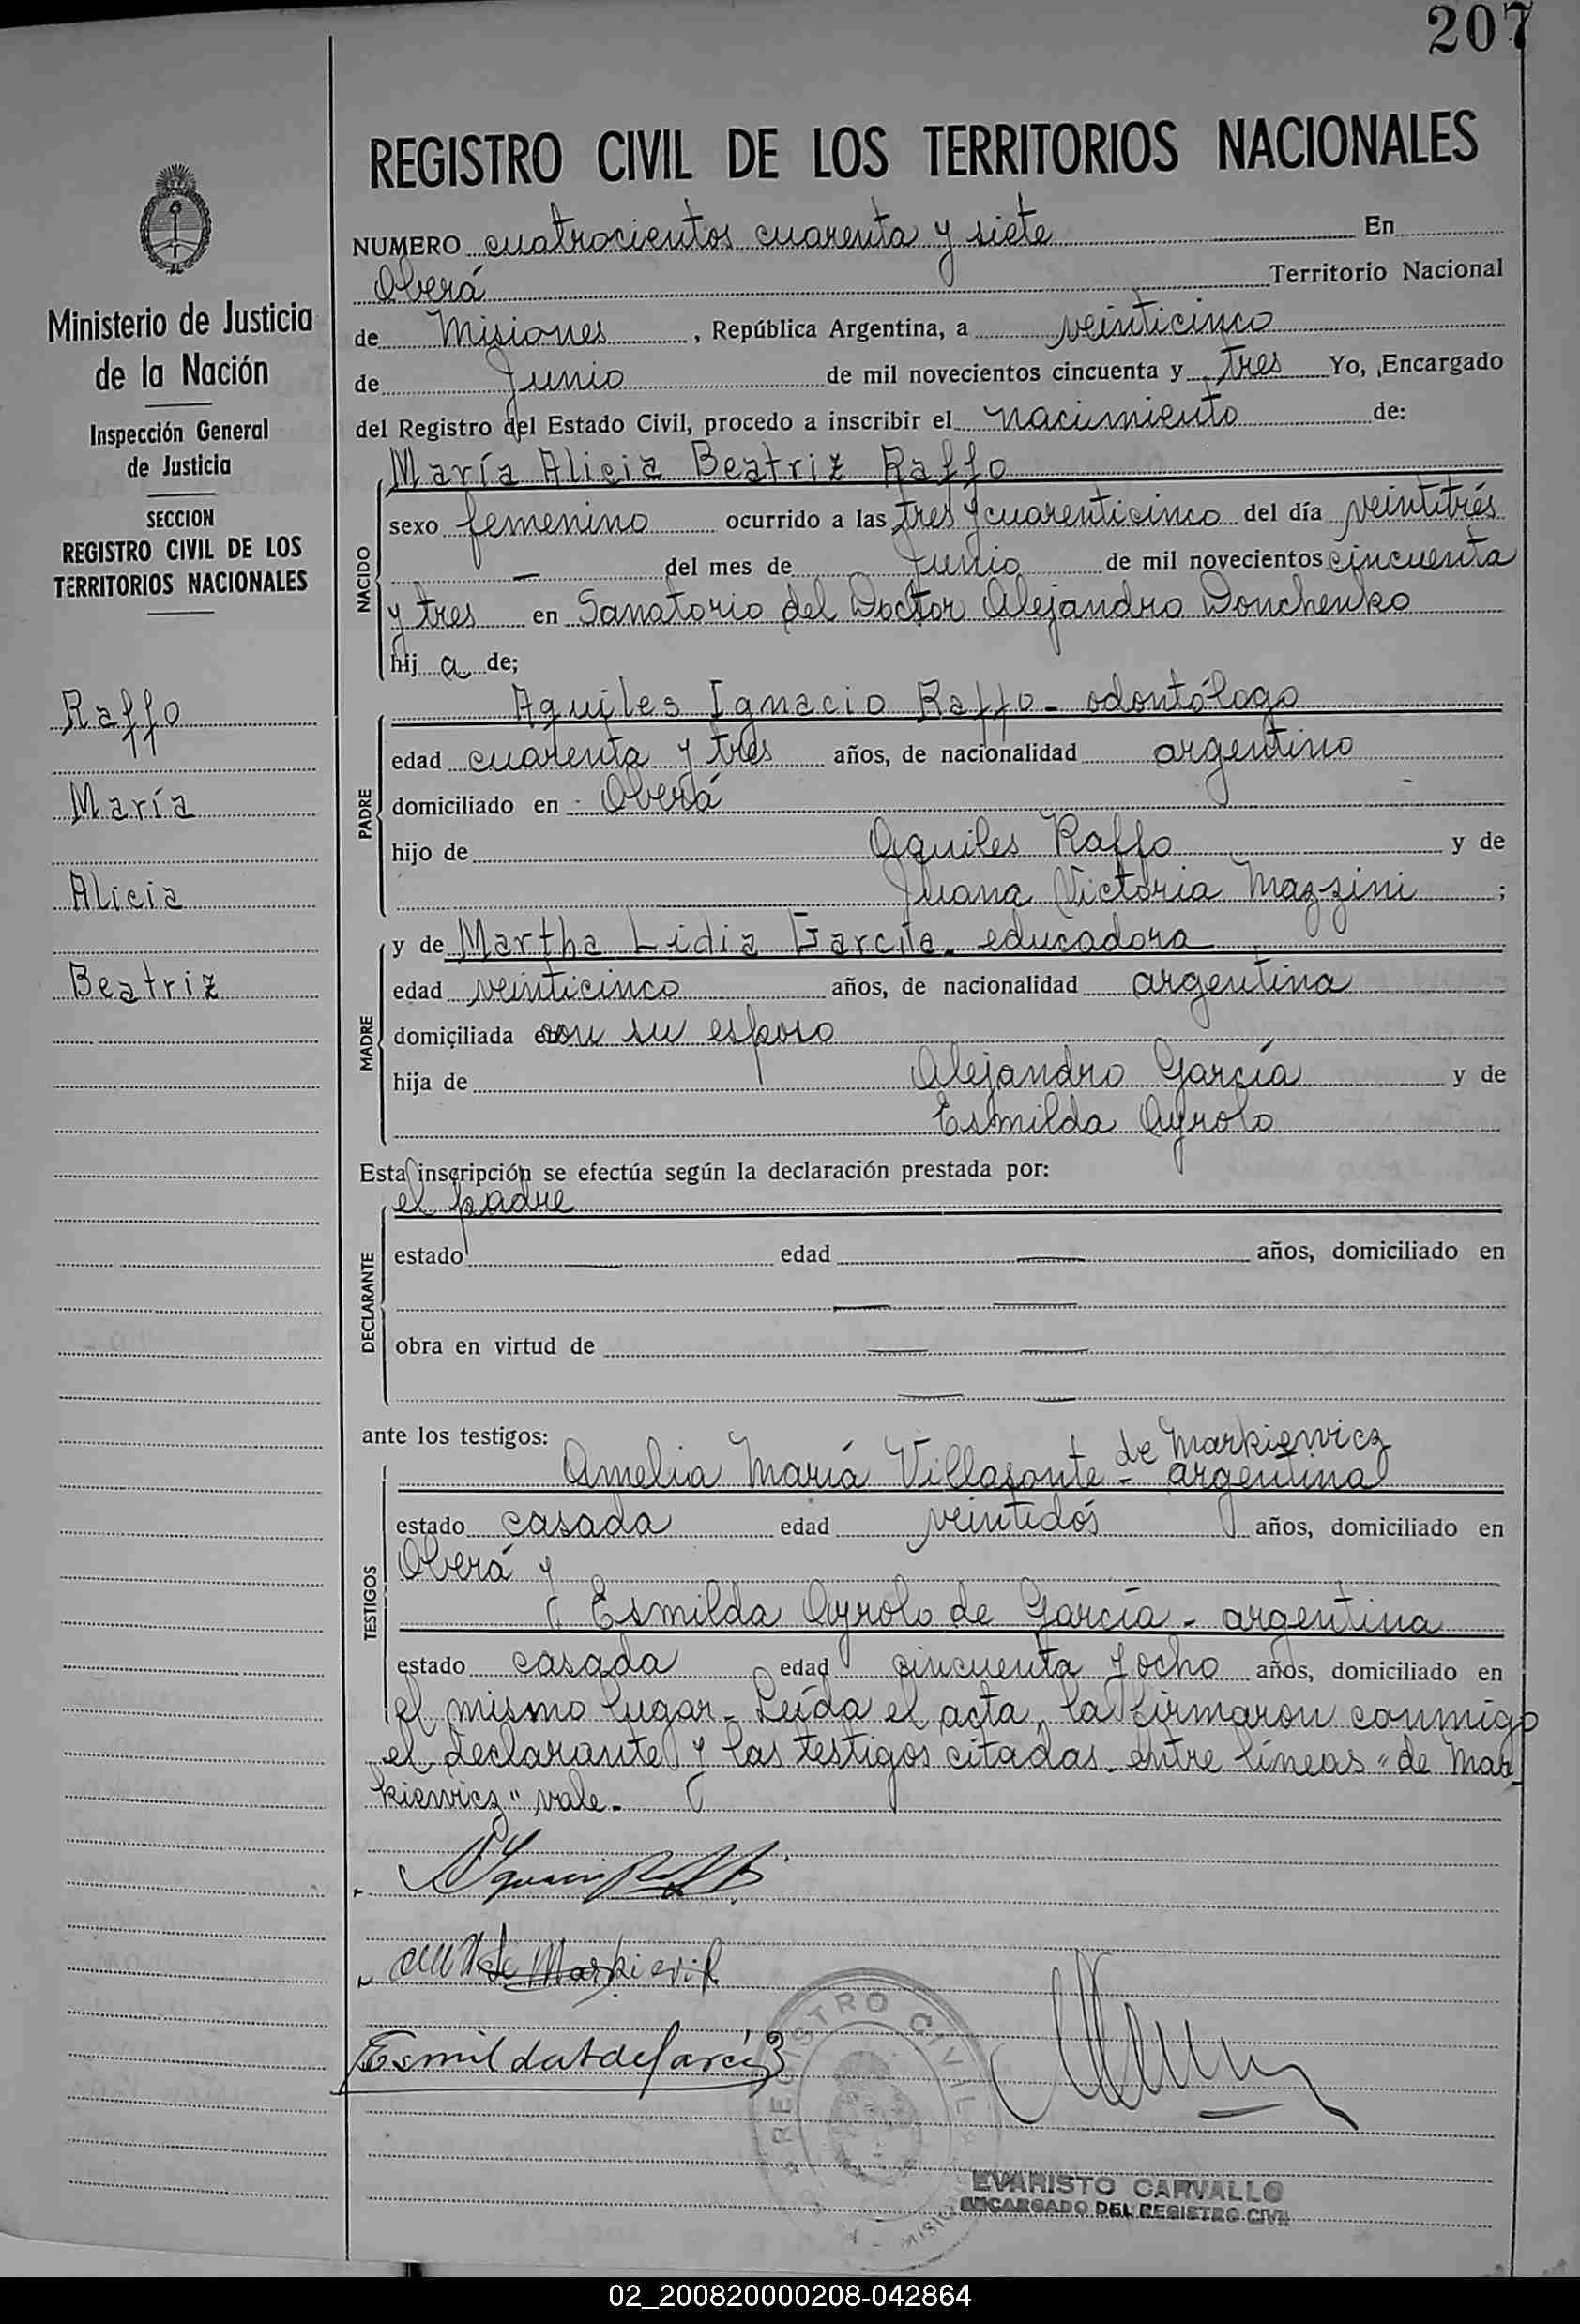 207
REGISTRO CIVIL DE LOS TERRITORIOS NACIONALES
Ministerio de Justicia
de la Nación
Inspección General
de Justicia
SECCION
REGISTRO CIVIL DE LOS
TERRITORIOS NACIONALES
Raffo
María
Alicia
Beatriz
NUMERO cuatrocientos cuarenta y siete En
Oberá Territorio Nacional
de Misiones, República Argentina, a veinticinco
de Junio de mil novecientos cincuenta y tres Yo, Encargado
del Registro del Estado Civil, procedo a inscribir el nacimiento de:
NACIDO
María Alicia Beatriz Raffo
sexo femenino ocurrido a las tres y cuarenticinco del día veintitrés
— del mes de Junio de mil novecientos cincuenta
y tres en Sanatorio del Doctor Alejandro Donchenko
hij a de;
PADRE
Aquiles Ignacio Raffo - odontólogo
edad cuarenta y tres años, de nacionalidad argentino
domiciliado en Oberá
hijo de Aquiles Raffo y de
Juana Victoria Mazzini ;
MADRE
y de Martha Lidia García - educadora
edad veinticinco años, de nacionalidad argentina
domiciliada con su esposo
hija de Alejandro García y de
Esmilda Ayrolo
Esta inscripción se efectúa según la declaración prestada por:
DECLARANTE
el padre
estado — edad — años, domiciliado en
— —
obra en virtud de — —
— —
ante los testigos:
TESTIGOS
de Markiewicz
Amelia María Villafonte - argentina
estado casada edad veintidós años, domiciliado en
Oberá y
Esmilda Ayrolo de García - argentina
estado casada edad cincuenta y ocho años, domiciliado en
el mismo lugar - Leída el acta, la firmaron conmigo
el declarante y las testigos citadas. entre líneas "de Mar-
kiewicz" vale.-
de Markievik
Esmilda A de García
REGISTRO CIVIL
EVARISTO CARVALLO
ENCARGADO DEL REGISTRO CIVIL
02_200820000208-042864